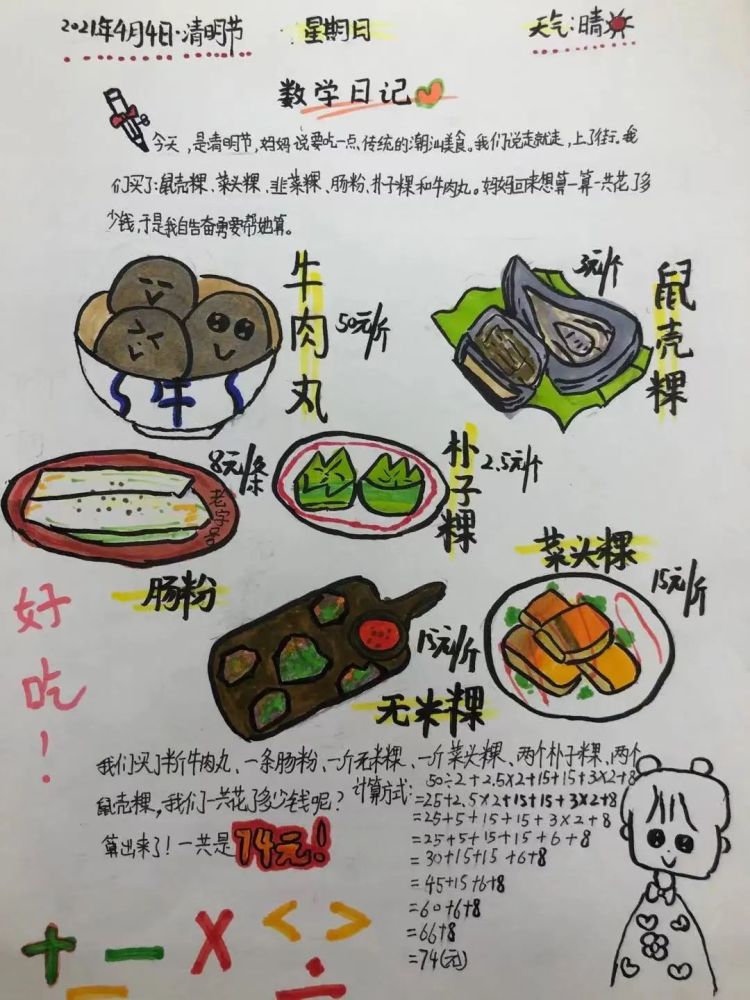 2021年4月4日·清明节 星期日 天气:晴
数学日记
今天,是清明节,妈妈说要吃一点传统的潮汕美食。我们说走就走,上了街。我
们买了:鼠壳粿、菜头粿、韭菜粿、肠粉、朴子粿和牛肉丸。妈妈回来想算一算一共花了多
少钱,于是我自告奋勇要帮她算。
牛肉丸
50元/斤
牛
3元/个
鼠壳粿
8元/条
老字号
肠粉
朴子粿
2.5元/个
菜头粿
15元/斤
15元/斤
无米粿
好吃!
我们买了半斤牛肉丸、一条肠粉、一斤无米粿、一斤菜头粿、两个朴子粿、两个
鼠壳粿,我们一共花了多少钱呢?
算出来了!一共是74元!
计算方式: 50÷2+2.5×2+15+15+3×2+8
=25+2.5×2+15+15+3×2+8
=25+5+15+15+3×2+8
=25+5+15+15+6+8
=30+15+15+6+8
=45+15+6+8
=60+6+8
=66+8
=74(元)
+ - × < > ÷ =